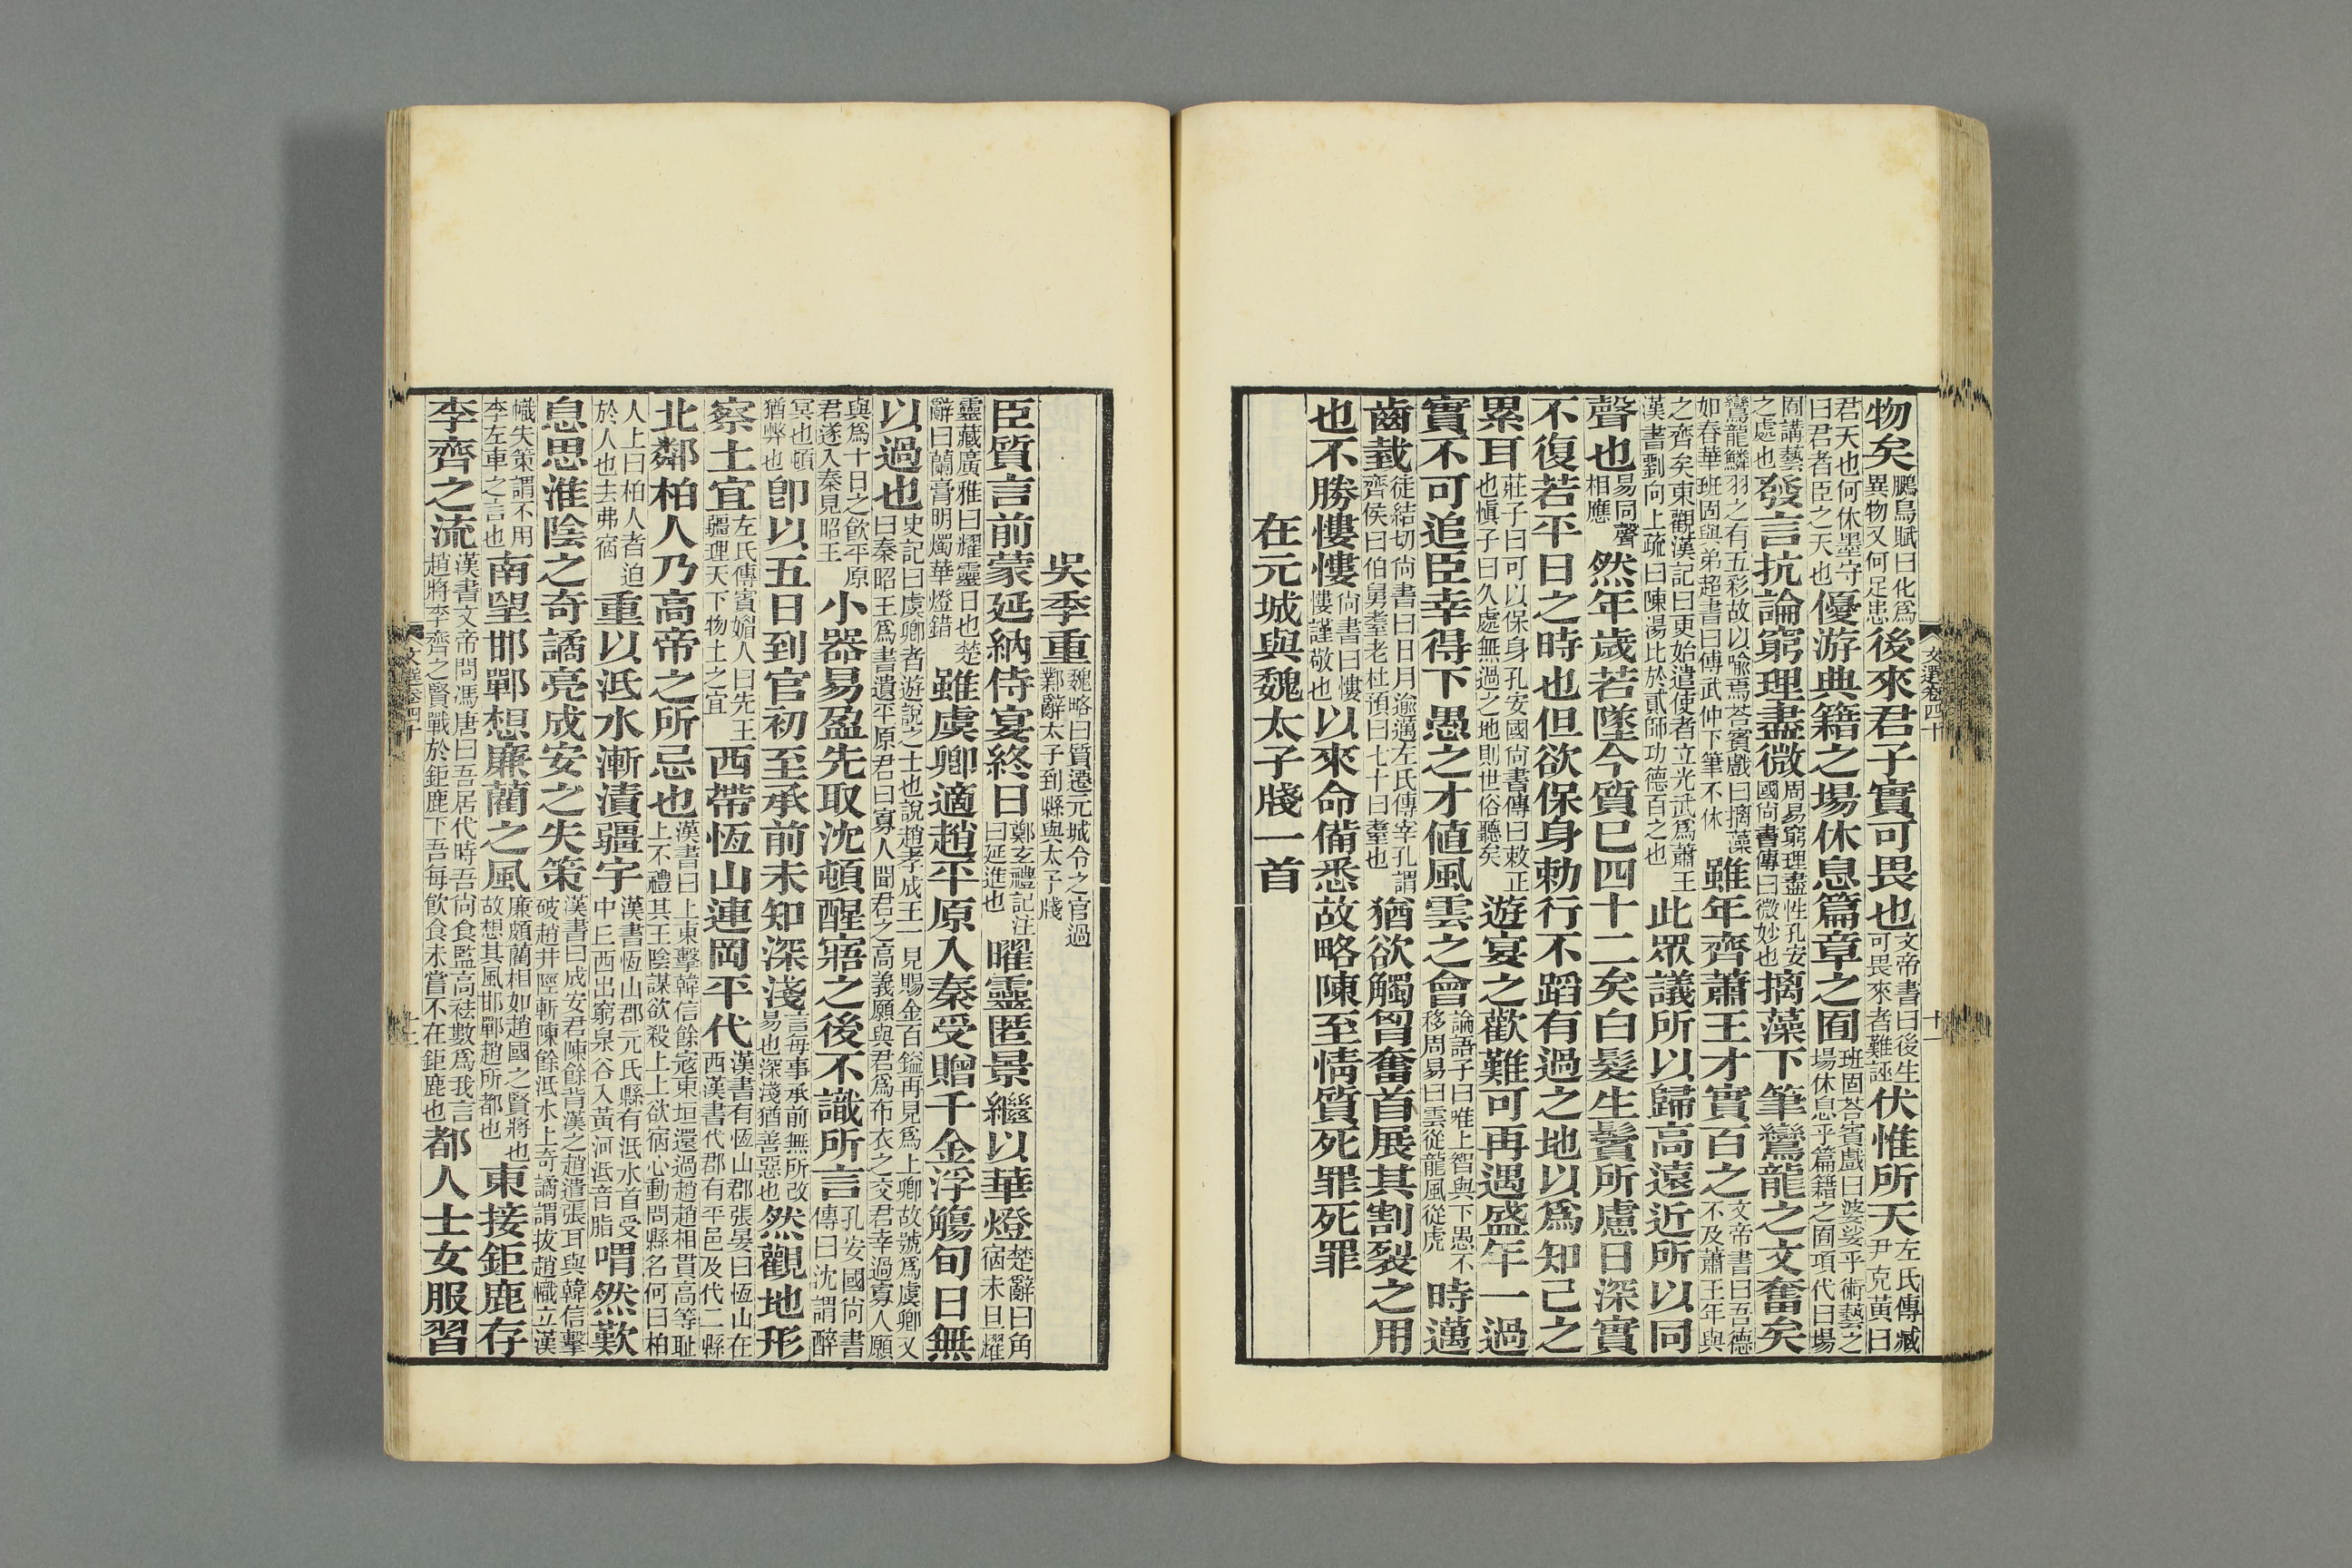 文選卷四十
十一
物矣鵩鳥賦曰化爲異物又何足患後來君子實可畏也文帝書曰後生可畏來者難誣伏惟所天左氏傳臧尹克黃曰
君天也何休墨守曰君者臣之天也優游典籍之場休息篇章之囿班固荅賓戲曰婆娑乎術藝之場休息乎篇籍之囿項代曰場
囿講藝之處也發言抗論窮理盡微周易窮理盡性孔安國尚書傳曰微妙也摛藻下筆鸞龍之文奮矣
鸞龍鱗羽之有五彩故以喻焉荅賓戲曰摛藻如春華班固與弟超書曰傅武仲下筆不休雖年齊蕭王才實百之文帝書曰吾德不及蕭王年與
之齊矣東觀漢記曰更始遣使者立光武爲蕭王漢書劉向上疏曰陳湯比於貳師功德百之也此眾議所以歸高遠近所以同
聲也易同聲相應然年歲若墜今質已四十二矣白髮生鬢所慮日深實
不復若平日之時也但欲保身勑行不蹈有過之地以爲知己之
累耳莊子曰可以保身孔安國尚書傳曰敕正也愼子曰久處無過之地則世俗聽矣遊宴之歡難可再遇盛年一過
實不可追臣幸得下愚之才值風雲之會論語子曰唯上智與下愚不移周易曰雲從龍風從虎時邁
齒臷徒結切尚書曰日月逾邁左氏傳宰孔謂齊侯曰伯舅耋老杜預曰七十曰耋也猶欲觸匈奮首展其割裂之用
也不勝慺慺尚書曰慺慺謹敬也以來命備悉故略陳至情質死罪死罪
在元城與魏太子牋一首
吳季重魏略曰質遷元城令之官過鄴辭太子到縣與太子牋
臣質言前蒙延納侍宴終日鄭玄禮記注曰延進也曜靈匿景繼以華燈楚辭曰角宿未旦耀
靈藏廣雅曰耀靈日也楚辭曰蘭膏明燭華燈錯雖虞卿適趙平原入秦受贈千金浮觴旬日無
以過也史記曰虞卿者遊說之士也說趙孝成王一見賜金百鎰再見爲上卿故號爲虞卿又曰秦昭王爲書遺平原君曰寡人聞君之高義願與君爲布衣之交君幸過寡人願
與爲十日之飮平原君遂入秦見昭王小器易盈先取沈頓醒寤之後不識所言孔安國尚書傳曰沈謂醉
冥也頓猶弊也卽以五日到官初至承前未知深淺言每事承前無所改易也深淺猶善惡也然觀地形
察土宜左氏傳賓媚人曰先王疆理天下物土之宜西帶恆山連岡平代漢書有恆山郡張晏曰恆山在西漢書代郡有平邑及代二縣
北鄰柏人乃高帝之所忌也漢書曰上東擊韓信餘寇東垣還過趙趙相貫高等恥上不禮其王陰謀欲殺上上欲宿心動問縣名何曰柏
人上曰柏人者迫於人也去弗宿重以泜水漸漬疆宇漢書恆山郡元氏縣有泜水首受中丘西出窮泉谷入黃河泜音脂喟然歎
息思淮陰之奇譎亮成安之失策漢書曰成安君陳餘背漢之趙遣張耳與韓信擊破趙井陘斬陳餘泜水上奇譎謂拔趙幟立漢
幟失策謂不用李左車之言也南望邯鄲想廉藺之風廉頗藺相如趙國之賢將也故想其風邯鄲趙所都也東接鉅鹿存
李齊之流漢書文帝問馮唐曰吾居代時吾尚食監高袪數爲我言趙將李齊之賢戰於鉅鹿下吾每飮食未嘗不在鉅鹿也都人士女服習
文選卷四十
十二